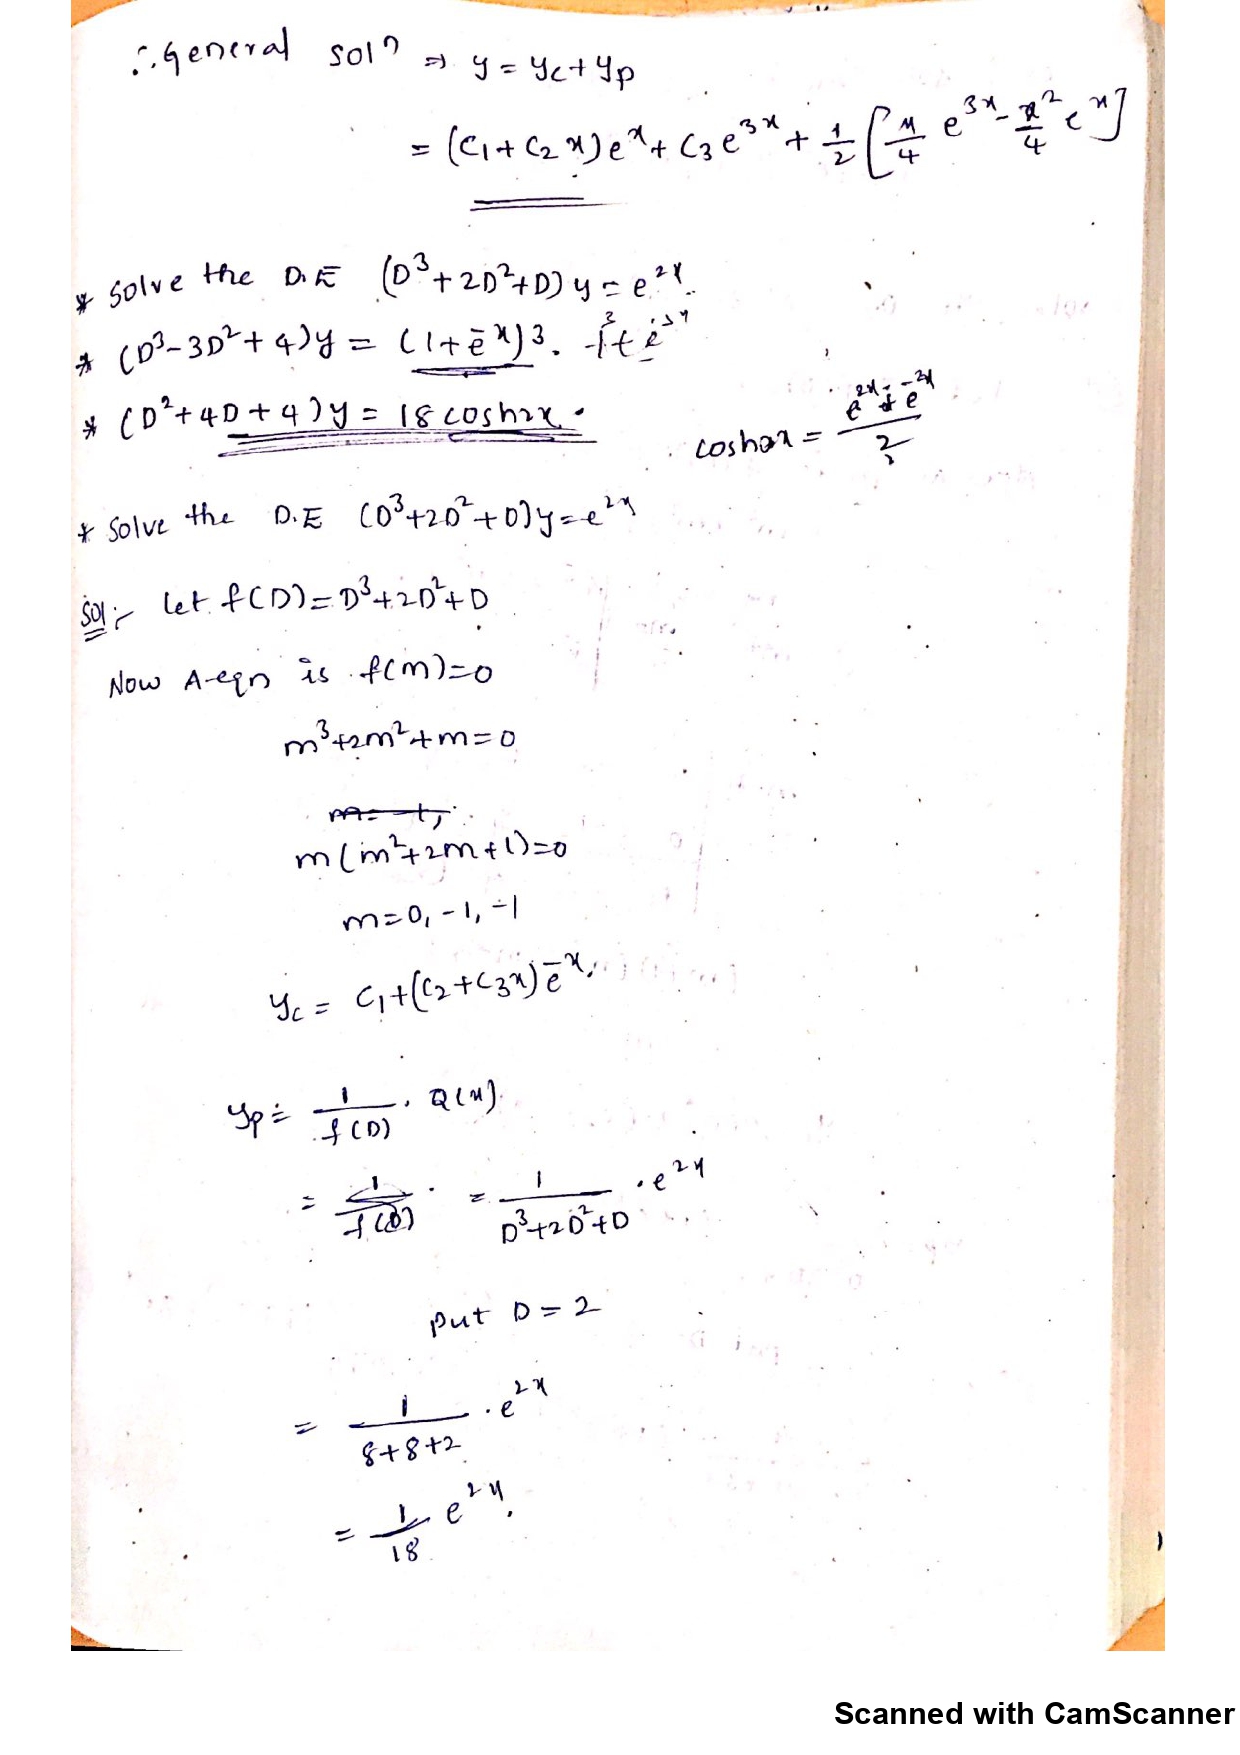 ∴ General Solⁿ ⇒ y = yc + yp
= (C₁ + C₂ x) eˣ + C₃ e³ˣ + 1/2 [x/4 e³ˣ - x²/4 eˣ]
* Solve the D.E (D³ + 2D² + D) y = e²ˣ.
* (D³ - 3D² + 4) y = (1 + e⁻ˣ)³.
* (D² + 4D + 4) y = 18 cosh2x.
cosh2x = (e²ˣ + e⁻²ˣ)/2
* Solve the D.E (D³ + 2D² + D) y = e²ˣ
Sol:- Let f(D) = D³ + 2D² + D
Now A-eqn is f(m) = 0
m³ + 2m² + m = 0
m(m² + 2m + 1) = 0
m = 0, -1, -1
yc = C₁ + (C₂ + C₃x) e⁻ˣ.
yp = 1/f(D) . Q(x).
= 1/f(D) . = 1/(D³ + 2D² + D) . e²ˣ
put D = 2
= 1/(8+8+2) . e²ˣ
= 1/18 e²ˣ.
Scanned with CamScanner